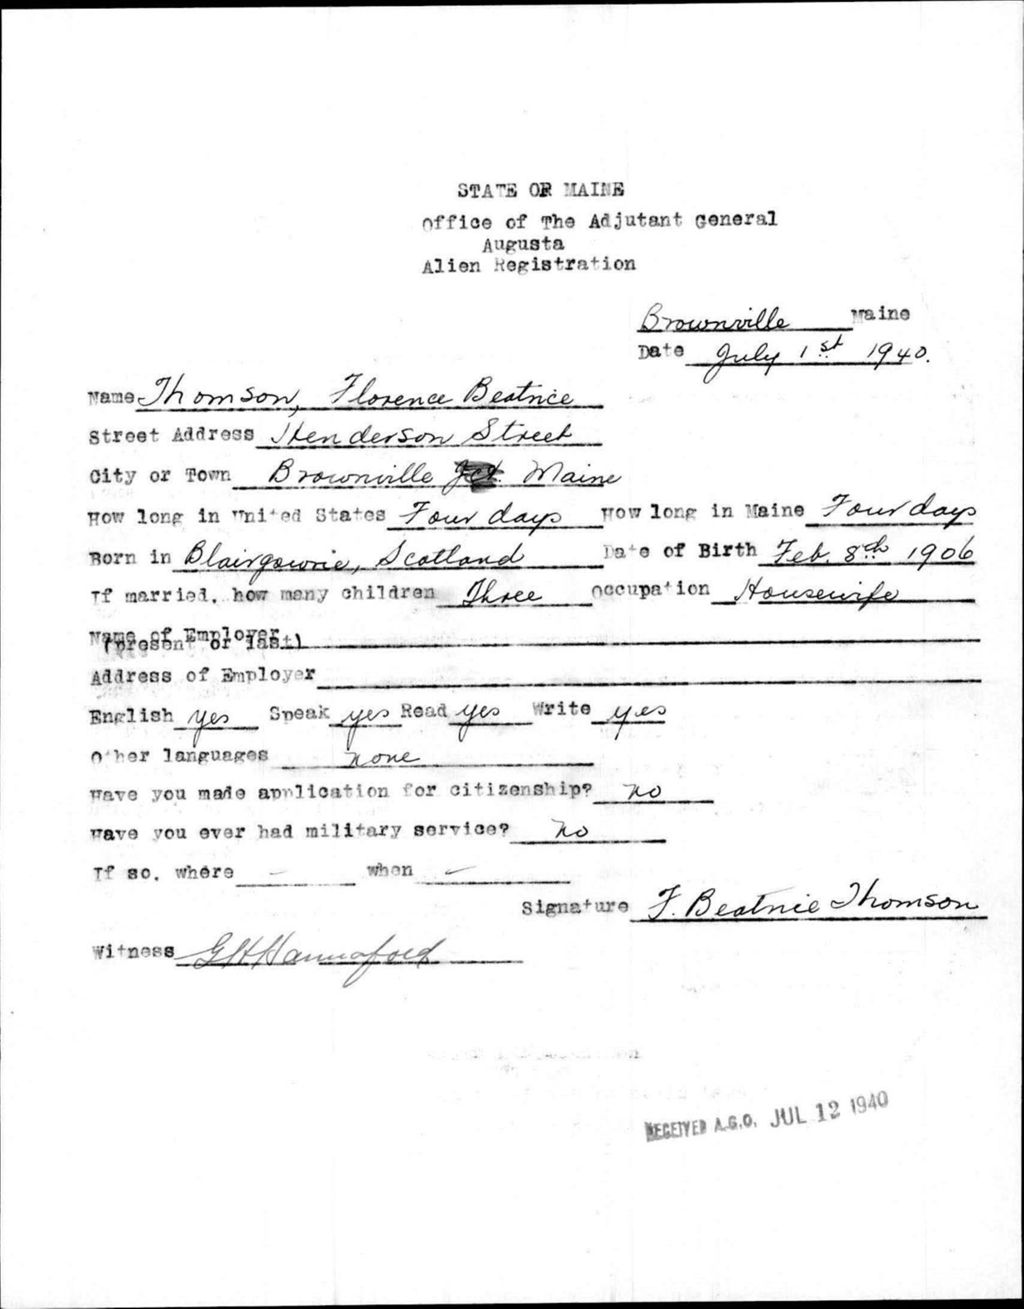 STATE OF MAINE
Office of The Adjutant General
Augusta
Alien Registration
Brownville Maine
Date July 1st 1940.
Name Thomson, Florence Beatrice
Street Address Henderson Street
City or Town Brownville Jct. Maine
How long in United States Four days How long in Maine Four days
Born in Blairgowrie, Scotland Date of Birth Feb. 8th 1906
If married, how many children Three Occupation Housewife
Name of Employer
(Present or last)
Address of Employer
English yes Speak yes Read yes Write yes
Other languages none
Have you made application for citizenship? no
Have you ever had military service? no
If so, where - when -
Signature F. Beatrice Thomson
Witness G H Hannaford
RECEIVED A.G.O. JUL 12 1940